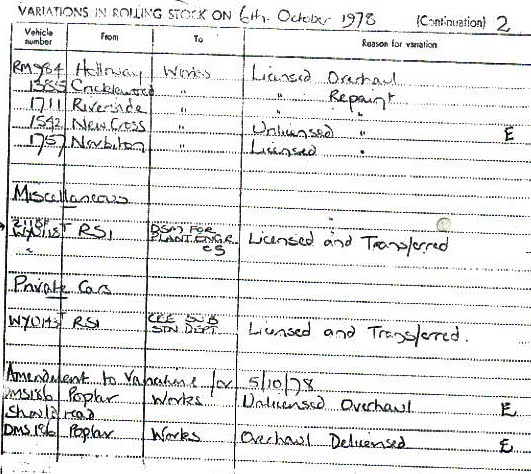 VARIATIONS IN ROLLING STOCK ON 6th October 1978 (Continuation) 2
Vehicle number From To Reason for variation
RM984 Holloway Works Licensed Overhaul
1385 Cricklewood " " Repaint
1711 Riverside " " "
1542 New Cross " Unlicensed " E
1757 Norbiton Licensed "
Miscellaneous
RS1 DSM FOR PLANT ENGR Licensed and Transferred
Private Cars
RS1 SUB STN DEPT Licensed and Transferred.
Amendment to Variations for 5/10/78
DMS186 Poplar Works Unlicensed Overhaul E
Should read
DMS196 Poplar Works Overhaul Delicensed E